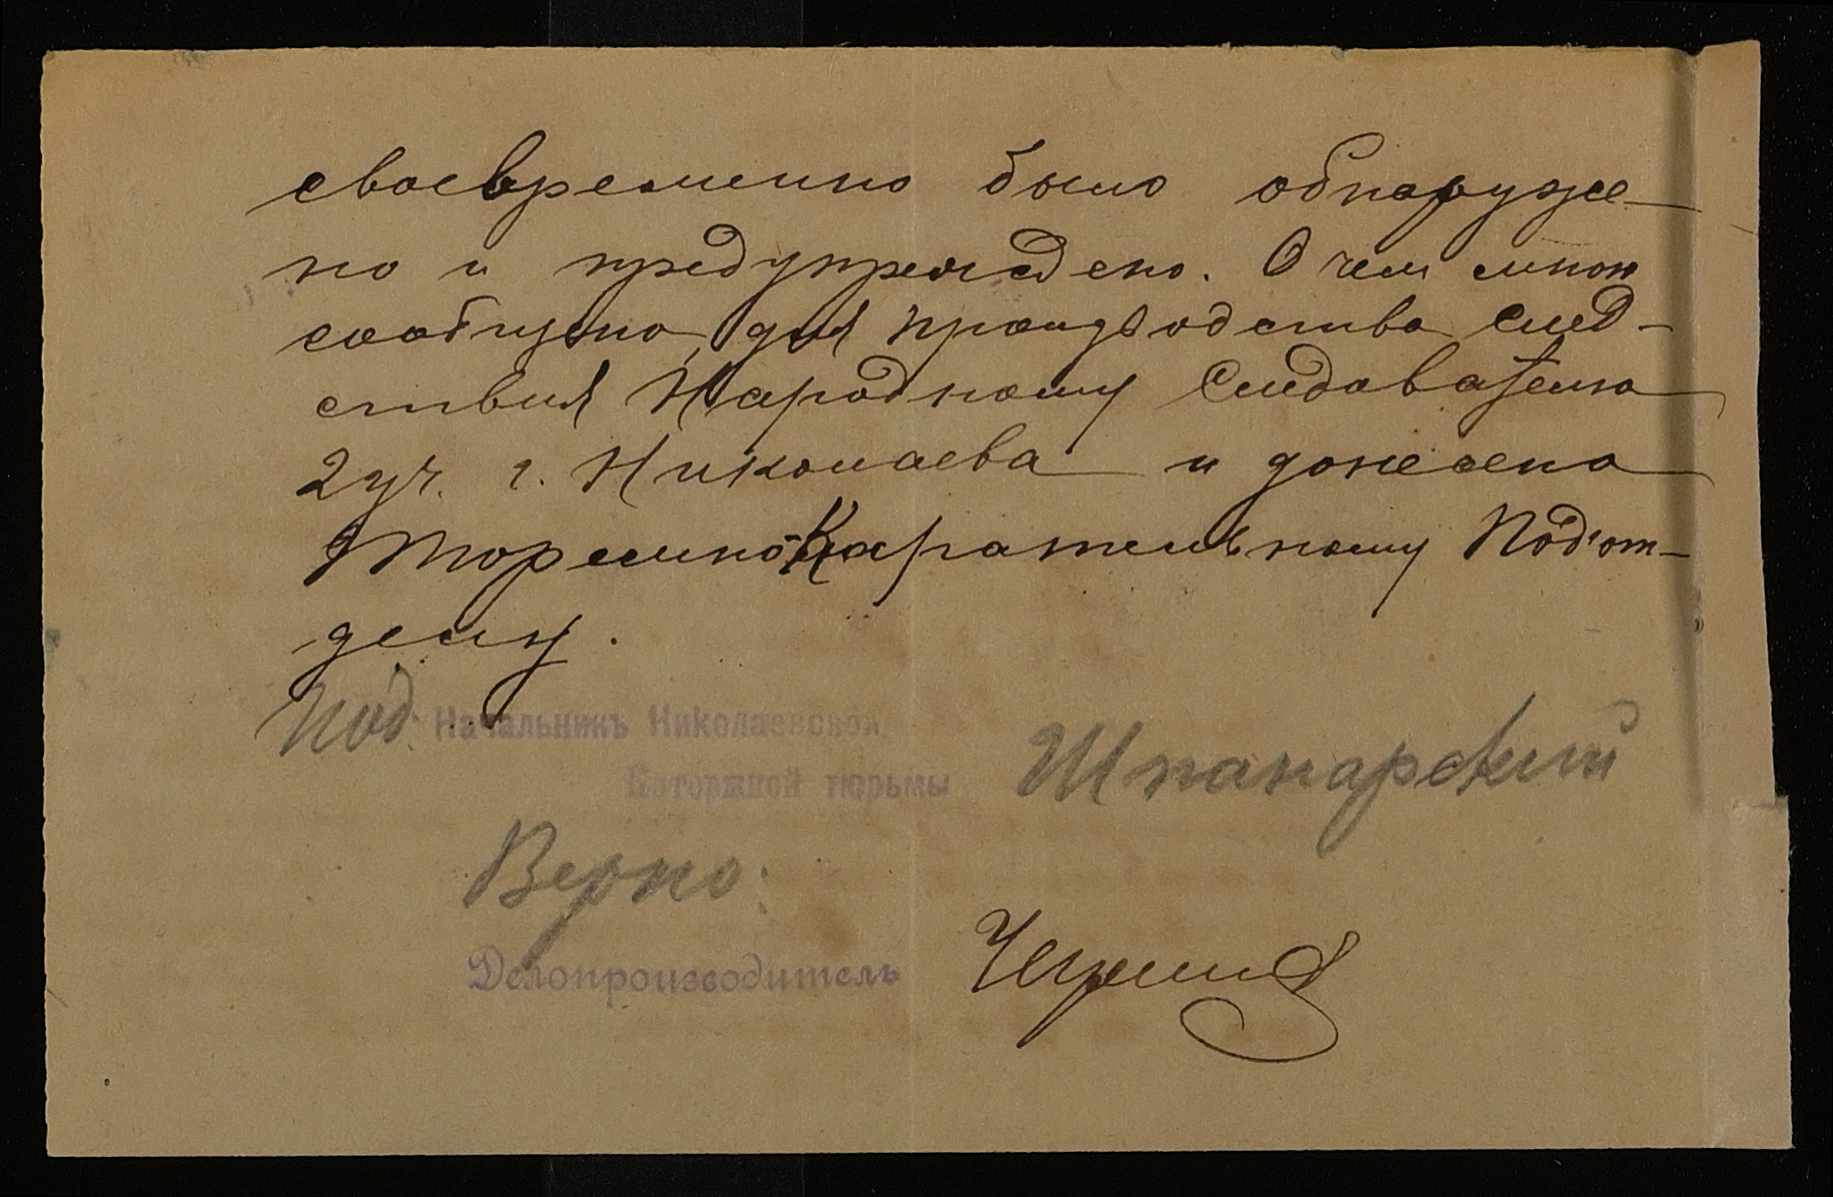 своевременно было обнаруже-
но и предупреждено. О чем мною
сообщено для производства след-
ствия Народному Следователю
2 уч. г. Николаева и донесено
Тюремно-Карательному Под'от-
делу.
Под. Начальникъ Николаевской
Каторжной тюрьмы Шпанарский
Верно:
Делопроизводитель